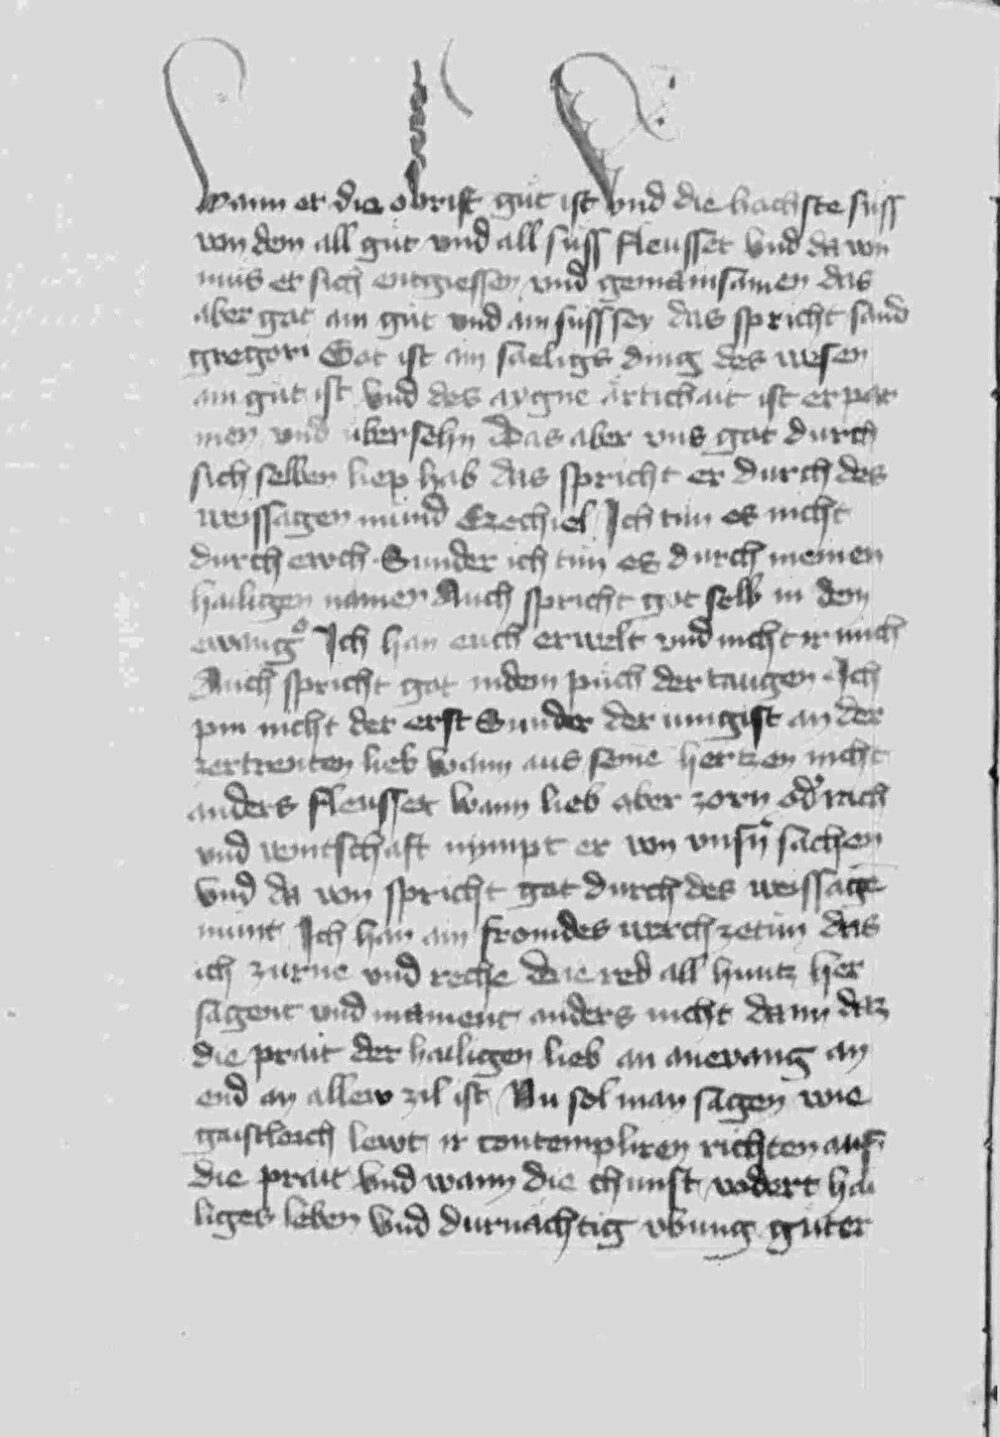 wann er die obrist güt ist vnd die hochste süss
von dem all güt vnd all süss fleusset vnd da von
mus er sich entgiessen vnd gemainsamen das
aber got ain güt vnd ain süss sey das spricht sand
gregori Got ist ain saeligs ding des wesen
ain güt ist vnd des aygne artichait ist erpar
men vnd übersehn Das aber vns got durch
sich selben liep hab das spricht er durch des
weissagen mund Ezechiel Ich tün es nicht
durch ewch Sunder ich tün es durch meinen
hailigen namen Auch spricht got selb in dem
ewango Ich han euch erwelt vnd nicht ir mich
Auch spricht got indem püch der taugen Ich
pin nicht der erst Sunder der iungist an der
zertrenten lieb wann aus seinē hertzen nicht
anders fleusset wann lieb aber zorn od' rach
vnd vintschaft nympt er von vnsn̄ sachen
vnd da von spricht got durch des weissagē
munt Ich han ain fromdes werch zetün das
ich zürne vnd reche Die red all huntz her
sagent vnd mainent anders nicht dann daz
die prait der hailigen lieb an anevang an
end an allew zil ist Nu sol man sagen wie
gaistleich lewt ir contempliren richten auf
die prait vnd wann die chunst vodert hai
liges leben vnd durnachtig vbung güter